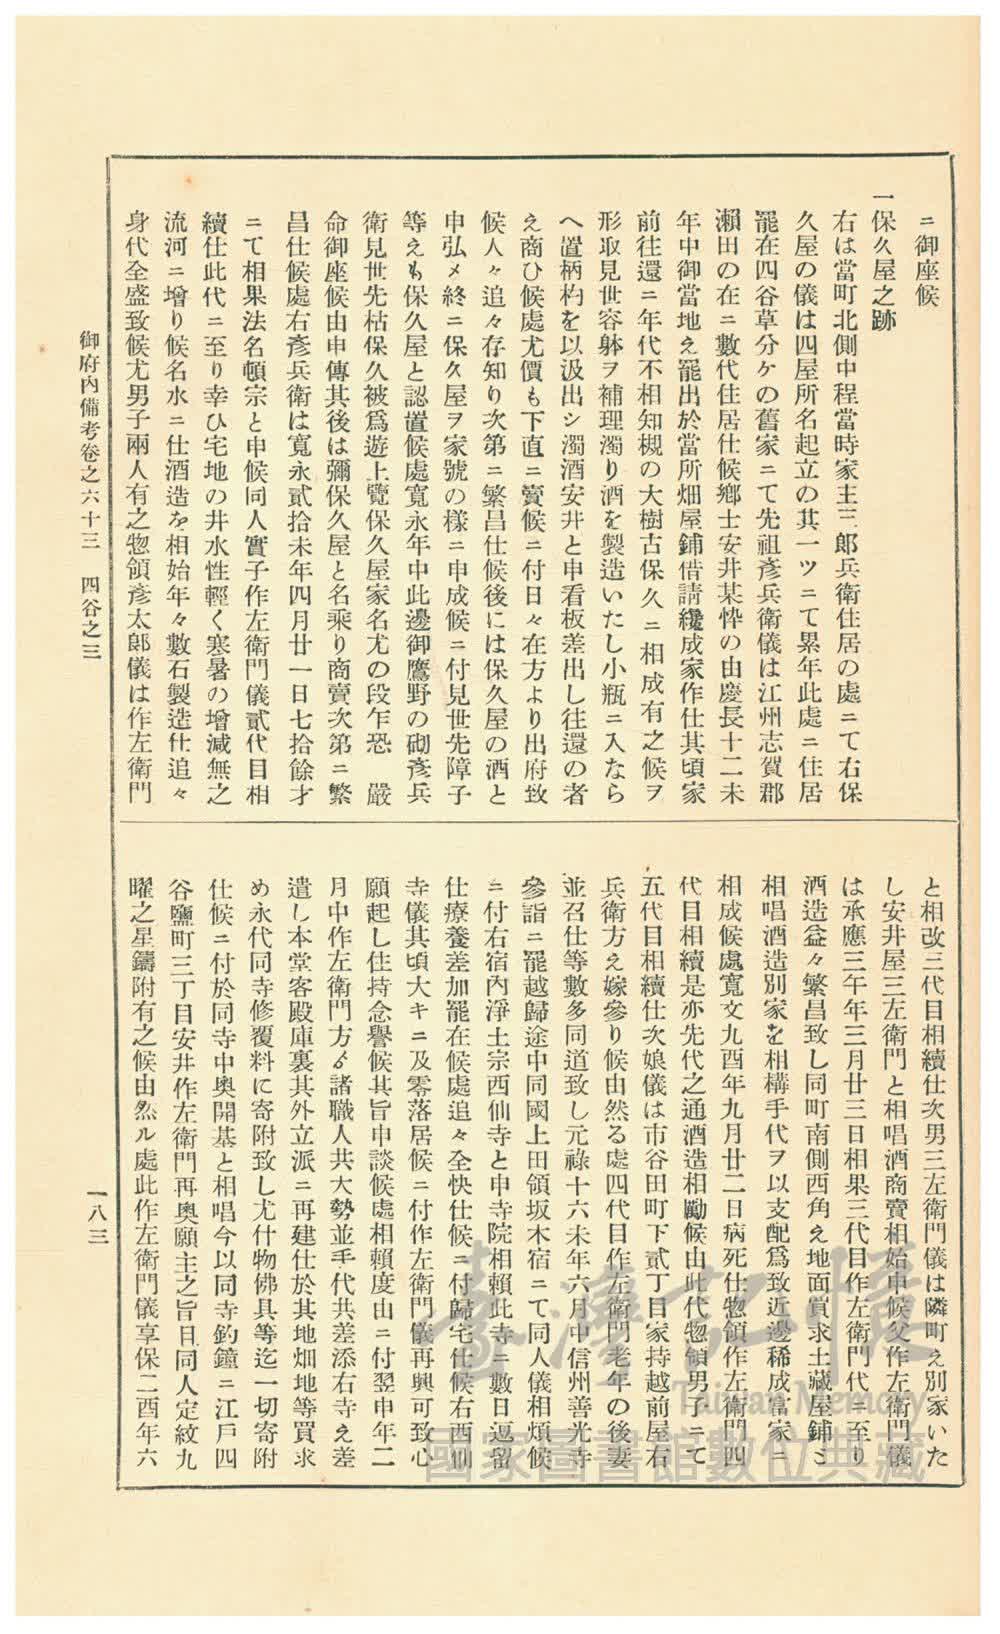 ニ御座候
一保久屋之跡
右は當町北側中程當時家主三郎兵衛住居の處ニて右保
久屋の儀は四屋所名起立の其一ツニて累年此處ニ住居
罷在四谷草分ケの舊家ニて先祖彥兵衛儀は江州志賀郡
瀨田の在ニ數代住居仕候鄉士安井某忰の由慶長十二未
年中御當地え罷出於當所畑屋鋪借請纔成家作仕其頃家
前往還ニ年代不相知槻の大樹古保久ニ相成有之候ヲ
形取見世容躰ヲ補理濁り酒を製造いたし小瓶ニ入なら
へ置柄杓を以汲出シ濁酒安井と申看板差出し往還の者
え商ひ候處尤價も下直ニ賣候ニ付日々在方より出府致
候人々追々存知り次第ニ繁昌仕候後には保久屋の酒と
申弘メ終ニ保久屋ヲ家號の樣ニ申成候ニ付見世先障子
等えも保久屋と認置候處寬永年中此邊御鷹野の砌彥兵
衛見世先枯保久被爲遊上覽保久屋家名尤の段乍恐　嚴
命御座候由申傳其後は彌保久屋と名乘り商賣次第ニ繁
昌仕候處右彥兵衛は寬永貳拾未年四月廿一日七拾餘才
ニて相果法名頓宗と申候同人實子作左衛門儀貳代目相
續仕此代ニ至り幸ひ宅地の井水性輕く寒暑の增減無之
流河ニ增り候名水ニ仕酒造を相始年々數石製造仕追々
身代全盛致候尤男子兩人有之惣領彥太郞儀は作左衛門
と相改三代目相續仕次男三左衛門儀は隣町え別家いた
し安井屋三左衛門と相唱酒商賣相始申候父作左衛門儀
は承應三午年三月廿三日相果三代目作左衛門代ニ至り
酒造益々繁昌致し同町南側西角え地面買求土藏屋鋪ニ
相唱酒造別家を相構手代ヲ以支配爲致近邊稀成富家ニ
相成候處寬文九酉年九月廿二日病死仕惣領作左衛門四
代目相續是亦先代之通酒造相勵候由此代惣領男子ニて
五代目相續仕次娘儀は市谷田町下貳丁目家持越前屋右
兵衛方え嫁參り候由然る處四代目作左衛門老年の後妻
並召仕等數多同道致し元祿十六未年六月中信州善光寺
參詣ニ罷越歸途中同國上田領坂木宿ニて同人儀相煩候
ニ付右宿內淨土宗西仙寺と申寺院相賴此寺ニ數日逗留
仕療養差加罷在候處追々全快仕候ニ付歸宅仕候右西仙
寺儀其頃大キニ及零落居候ニ付作左衛門儀再興可致心
願起し住持念譽候其旨申談候處相賴度由ニ付翌申年二
月中作左衛門方ゟ諸職人共大勢並手代共差添右寺え差
遣し本堂客殿庫裏其外立派ニ再建仕於其地畑地等買求
め永代同寺修覆料に寄附致し尤什物佛具等迄一切寄附
仕候ニ付於同寺中奧開基と相唱今以同寺釣鐘ニ江戶四
谷鹽町三丁目安井作左衛門再奧願主之旨且同人定紋九
曜之星鑄附有之候由然ル處此作左衛門儀享保二酉年六
御府內備考卷之六十三　四谷之三
一八三
臺灣記憶
Taiwan Memory
國家圖書館數位典藏